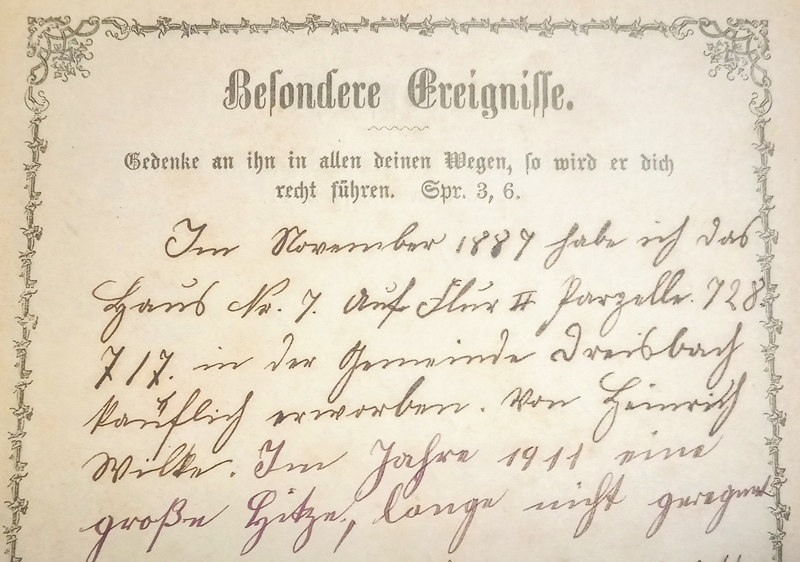 Besondere Ereignisse.
Gedenke an ihn in allen deinen Wegen, so wird er dich
recht führen. Spr. 3, 6.
Im November 1887 habe ich das
Haus Nr. 7. Auf Flur II Parzelle. 728.
717. in der Gemeinde Dreisbach
käuflich erworben. Von Heinrich
Wilke. Im Jahre 1911 eine
große Hitze, lange nicht geregnet